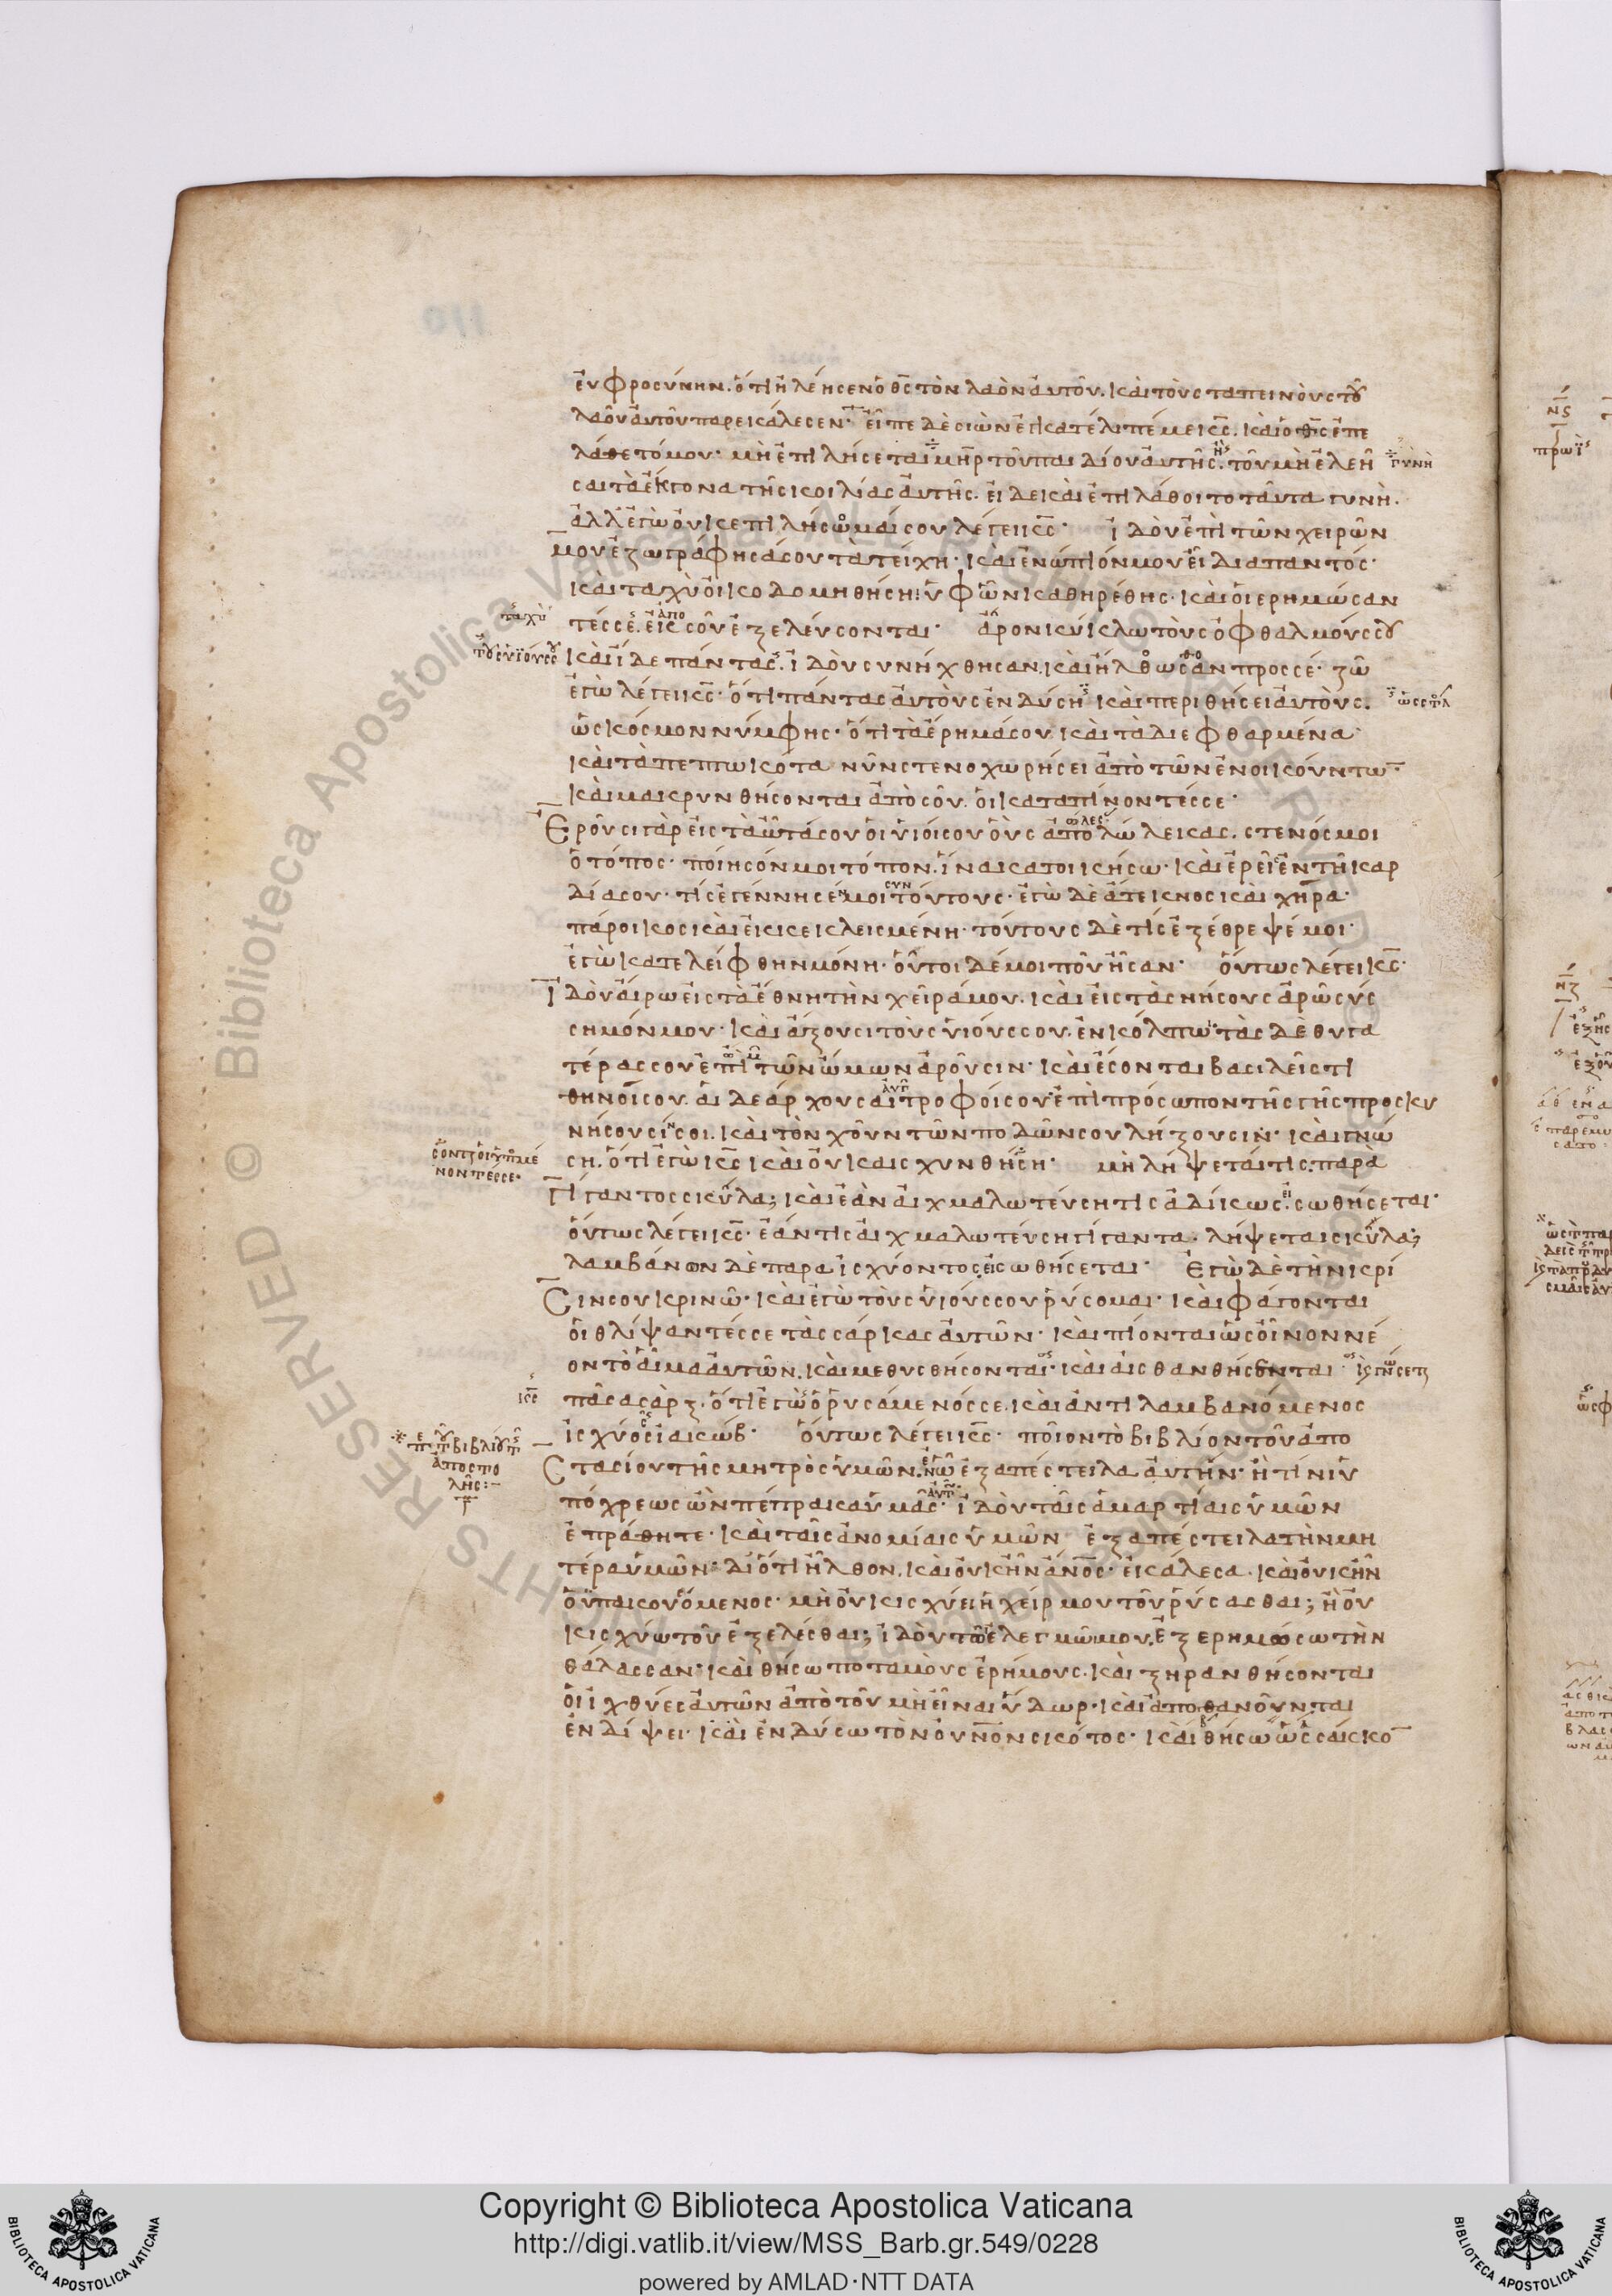 εὐφροσύνην. ὅτι ἠλέησεν ὁ θς τὸν λαὸν αὐτοῦ. καὶ τοὺς ταπεινοὺς τοῦ
λαοῦ αὐτοῦ παρεκάλεσεν· εἶπε δὲ σιών ἐγκατέλιπέ με κς. καὶ ὁ θς ἐπε
λάθετό μου· μὴ ἐπιλήσεται μηρ τοῦ παιδίου αὐτῆς. τοῦ μὴ ἐλεῆ
σαι τὰ ἔκγονα τῆς κοιλίας αὐτῆς. εἰ δε καὶ ἐπιλάθοιτο ταῦτα γυνὴ.
ἀλλ' ἐγὼ οὐκ ἐπιλήσομαί σου λέγει κς· ἰδοὺ ἐπὶ τῶν χειρῶν
μου ἐζωγράφησά σου τὰ τείχη· καὶ ἐνώπιόν μου εἶ διαπαντός·
καὶ ταχὺ οἰκοδομηθήσῃ ὑφ ὧν καθηρέθης· καὶ οἱ ερημώσαν
τές σε. ἐκ σοῦ ἐξελεύσονται· ἆρον κύκλω τοὺς ὀφθαλμούς σου
καὶ ἴδε πάντας. ἰδοὺ συνήχθησαν. καὶ ἤλθοσαν προς σέ· ζῶ
ἐγὼ λέγει κς· ὅτι πάντας αὐτοὺς ἐνδύσῃ καὶ περιθήσει αὐτοὺς.
ὡς κόσμον νύμφης· ὅτι τὰ ἔρημά σου καὶ τὰ διεφθαρμένα
καὶ τὰ πεπτωκότα νῦν στενοχωρήσει ἀπὸ τῶν ἐνοικούντω
καὶ μακρυνθήσονται ἀπὸ σοῦ. οἱ καταπίνοντές σε·
Ἐροῦσι γὰρ εἰς τὰ ὦτά σου οἱ υἱοί σου οὓς ἀπολώλεκας. στενός μοι
ὁ τόπος· ποίησόν μοι τόπον. ἵνα κατοικήσω· καὶ ἐρεῖ ἐν τῆ καρ
δία σου· τίς ἐγέννησέν μοι τούτους· ἐγὼ δὲ ἄτεκνος καὶ χήρα·
πάροικος καὶ ἐκκεκλεισμένη· τούτους δὲ τίς ἐξέθρεψέ μοι·
ἐγὼ κατελείφθην μόνη· οὗτοι δέ μοι ποῦ ἦσαν· οὕτως λέγει κς·
Ἰδοὺ αἴρω εἰς τὰ ἔθνη τὴν χεῖρά μου. καὶ εἰς τὰς νήσους ἀρῶ σύσ
σημόν μου· καὶ ἄξουσι τοὺς υἱούς σου. ἐν κόλπω· τὰς δὲ θυγα
τέρας σου ἐπὶ τῶν ὤμων ἀροῦσιν· καὶ ἔσονται βασιλεῖς τι
θηνοί σου. αἱ δε άρχουσαι τροφοί σου· ἐπὶ πρόσωπον τῆς γῆς προσκυ
νήσουσίν σοι. καὶ τὸν χοῦν τῶν ποδῶν σου λήξουσιν· καὶ γνώ
σῃ. ὅτι ἐγὼ κς καὶ οὐκ αισχυνθήσῃ· μὴ λήψεταί τις παρὰ
Γίγαντος σκῦλα; καὶ ἐὰν αἰχμαλωτεύσῃ τις ἀδίκως. σωθήσεται·
οὕτως λέγει κς· ἐάν τις αἰχμαλωτεύσῃ γίγαντα. λήψεται σκῦλα;
λαμβάνων δὲ παρα ἰσχύοντος σωθήσεται· Ἐγὼ δὲ τὴν κρί
Σιν σου κρινῶ· καὶ ἐγὼ τοὺς υἱούς σου ῥύσομαι· καὶ φάγονται
οἱ θλίψαντές σε τὰς σάρκας αὐτῶν· καὶ πίονται ὡς οἶνον νέ
ον τὸ αἷμα αὐτῶν. καὶ μεθυσθήσονται· καὶ αἰσθανθήσονται
πᾶσα σὰρξ. ὅτι ἐγὼ ὁ ῥυσάμενός σε. καὶ ἀντιλαμβανόμενος
ἰσχύος ἰακώβ· οὕτως λέγει κς· ποῖον τὸ βιβλίον τοῦ ἀπο
Στασίου τῆς μητρὸς ὑμῶν. ὧ ἐξαπέστειλα αὐτήν· ἢ τίνι ὑ
πόχρεως ὢν πέπρακα ὑμᾶς· ἰδοὺ ταῖς ἁμαρτίαις ὑμῶν
ἐπράθητε· καὶ ταῖς ἀνομίαις ὑμῶν ἐξαπέστειλα τὴν μη
τέρα ὑμῶν· διότι ἦλθον. καὶ οὐκ ἦν ἄνος· ἐκάλεσα. καὶ οὐκ ἦν
ὁ ϋπακουόμενος· μὴ οὐκ ισχύει ἡ χείρ μου τοῦ ῥύσασθαι; ἢ οὐ
κ ισχύω τοῦ ἐξελέσθαι; ἰδοὺ τῶ ἐλεγμῶ μου. Ἐξερημώσω τὴν
θάλασσαν· καὶ θήσω ποταμοὺς ἐρήμους. καὶ ξηρανθήσονται
οἱ ἰχθύες αὐτῶν ἀπὸ τοῦ μὴ εἶναι ὕδωρ. καὶ ἀποθανοῦνται
ἐν δίψει· καὶ ἐνδύσω τὸν οὐνον σκότος· καὶ θήσω ὡς σάκκο
γυνὴ
ταχὺ
Copyright © Biblioteca Apostolica Vaticana
http://digi.vatlib.it/view/MSS_Barb.gr.549/0228
powered by AMLAD·NTT DATA